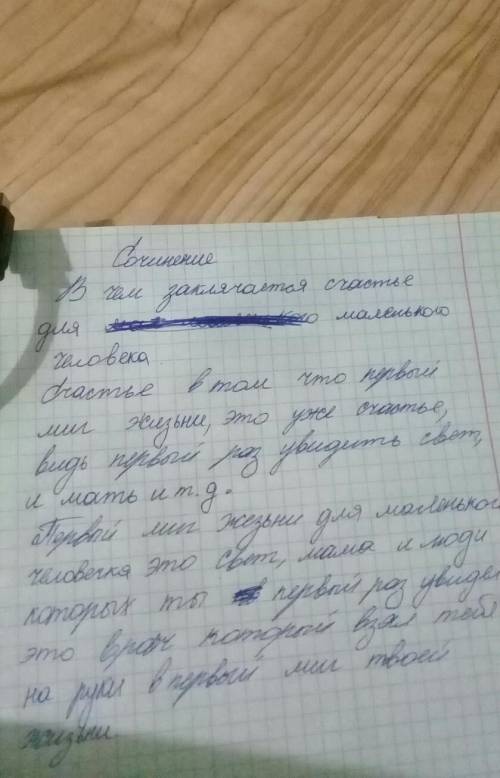 Сочинение
В чем заключается счастье
для маленького
человека
Счастье в том что первый
миг жизьни, это уже счастье,
видь первый раз увидить свет,
и мать и т.д.
Первый миг жезьни для маленького
человечка это свет, мама и люди
которых ты первый раз увидел
это врач который взял тебя
на руки в первый миг твоей
жизьни.